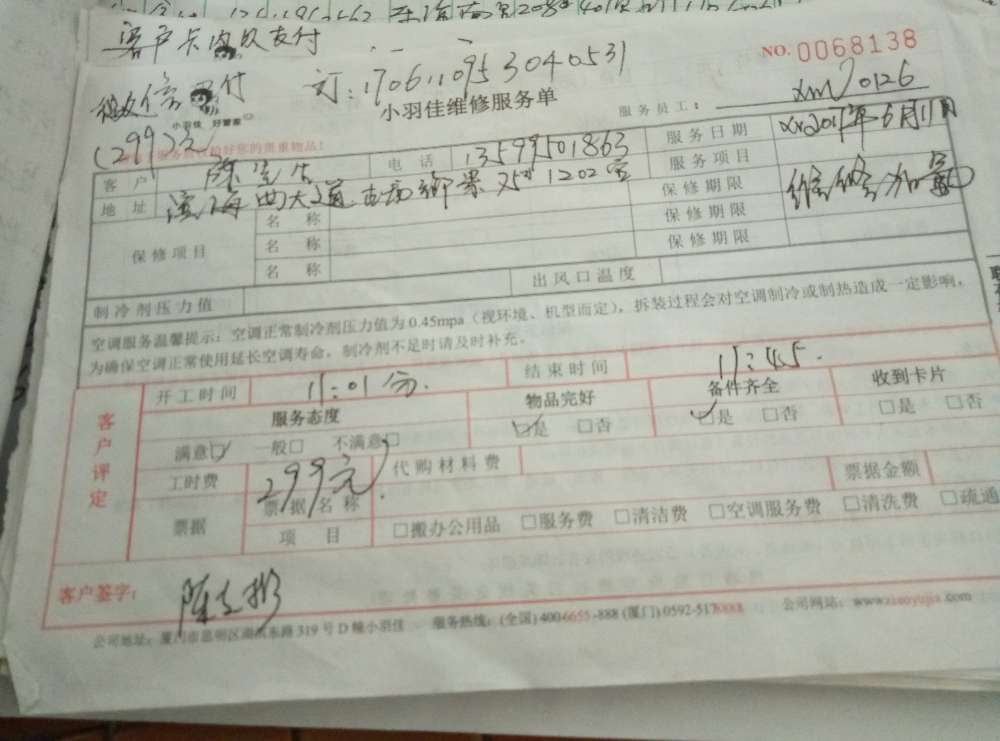 客户卡内以支付
NO. 0068138
订:1706110953040531
小羽佳维修服务单
服务员工: xm20126
小羽佳 好管家
(299)元
您的贵重物品!
客户 电话 13599501863 服务日期 2017年6月11日
地址 滨海西大道 1202室 服务项目 维修
保修项目 名称 保修期限
名称 保修期限
名称 保修期限
制冷剂压力值 出风口温度
空调服务温馨提示:空调正常制冷剂压力值为0.45mpa(视环境、机型而定),拆装过程会对空调制冷或制热造成一定影响,
为确保空调正常使用延长空调寿命,制冷剂不足时请及时补充。
客户评定
开工时间 11:01分. 结束时间 11:45.
服务态度 物品完好 备件齐全 收到卡片
满意☑ 一般□ 不满意□ ☑是 □否 ☑是 □否 □是 □否
工时费 299元 代购材料费 票据金额
票据 票据名称
项目 □搬办公用品 □服务费 □清洁费 □空调服务费 □清洗费 □疏通
客户签字:
公司地址:厦门市思明区湖滨东路319号D幢小羽佳 服务热线:(全国)4006655-888 (厦门)0592-5178888 公司网站:www.xiaoyujia.com